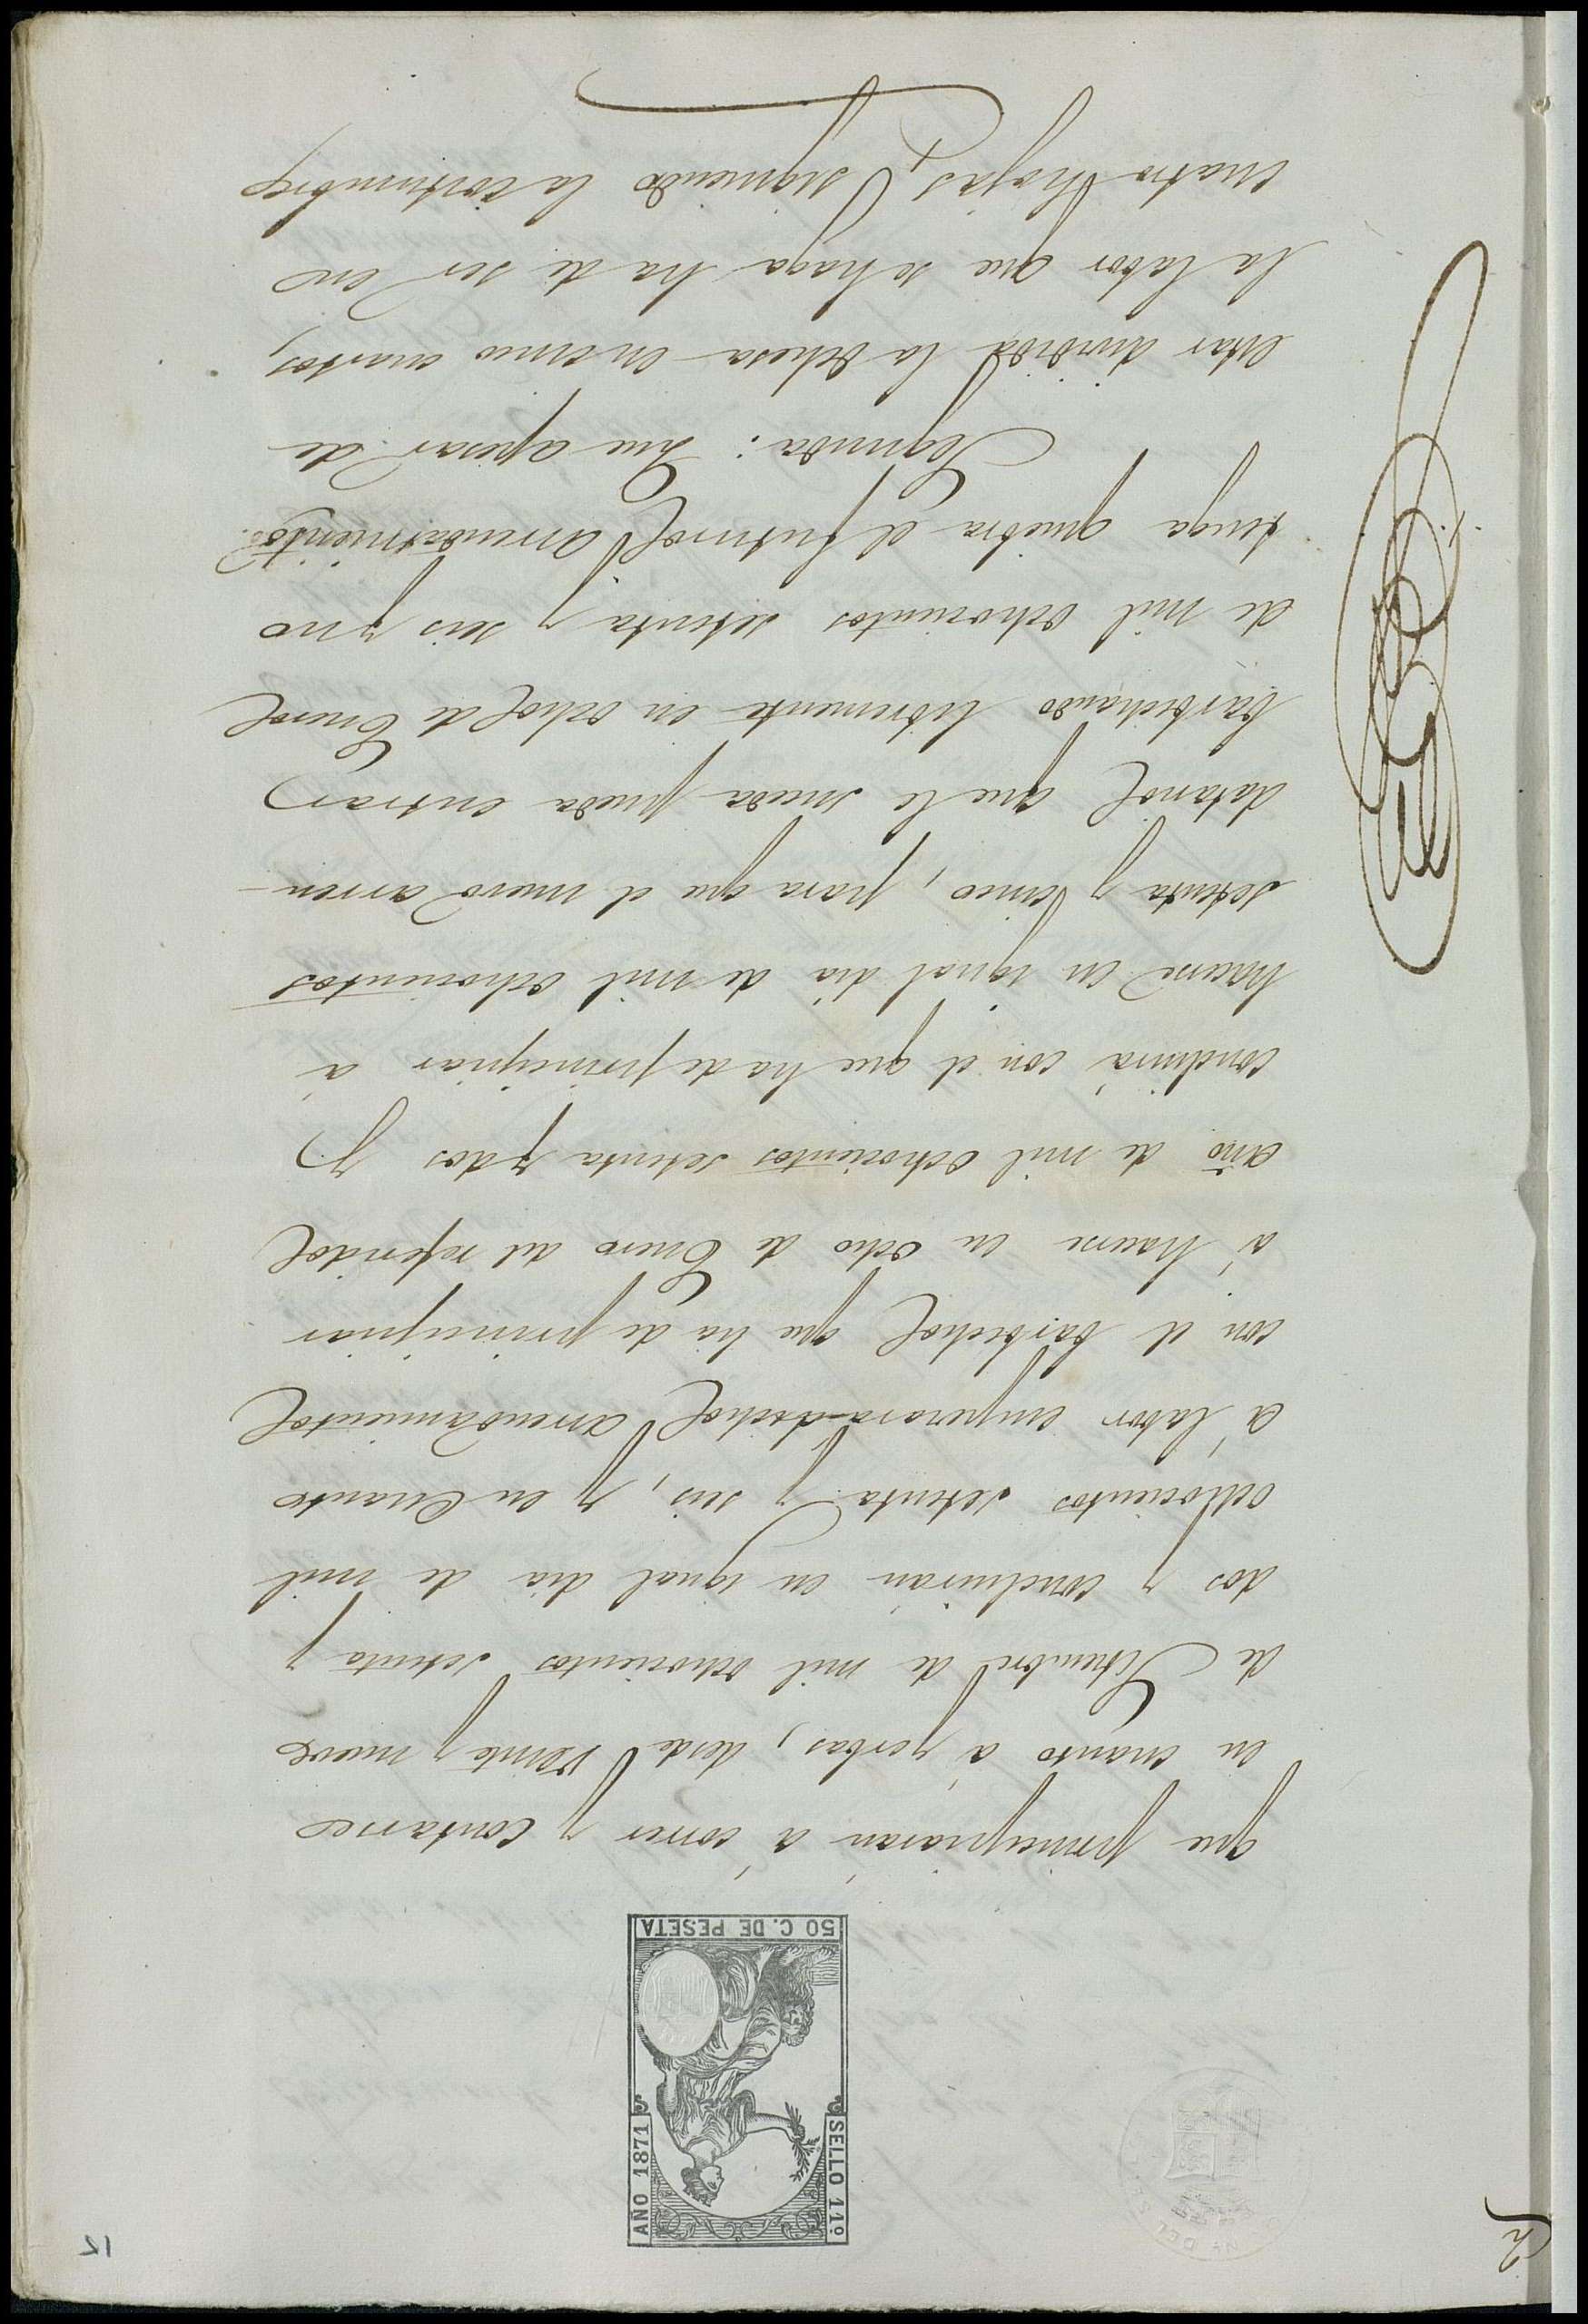 12
SELLO 11º
AÑO 1871
50 C. DE PESETA
que principiarán á correr y contarse
en cuanto á yerbas, desde veinte y nueve
de Setiembre de mil ochocientos setenta y
dos y concluirán en igual dia de mil
ochocientos setenta y seis, y en cuanto
á labor empezará dicho arrendamiento
con el barbecho que ha de principiar
á hacerse en ocho de Enero del referido
año de mil ochocientos setenta y dos y
concluirá con el que ha de principiar á
hacerse en igual dia de mil ochocientos
setenta y cinco, para que el nuevo arren-
datario que le suceda pueda entrar
barbechando libremente en ocho de Enero
de mil ochocientos setenta y seis y no
tenga quiebra el futuro arrendamiento.
Segunda: Que apesar de
estar dividida la dehesa en cinco cuartos,
la labor que se haga ha de ser en
cuatro hojas, siguiendo la costumbre